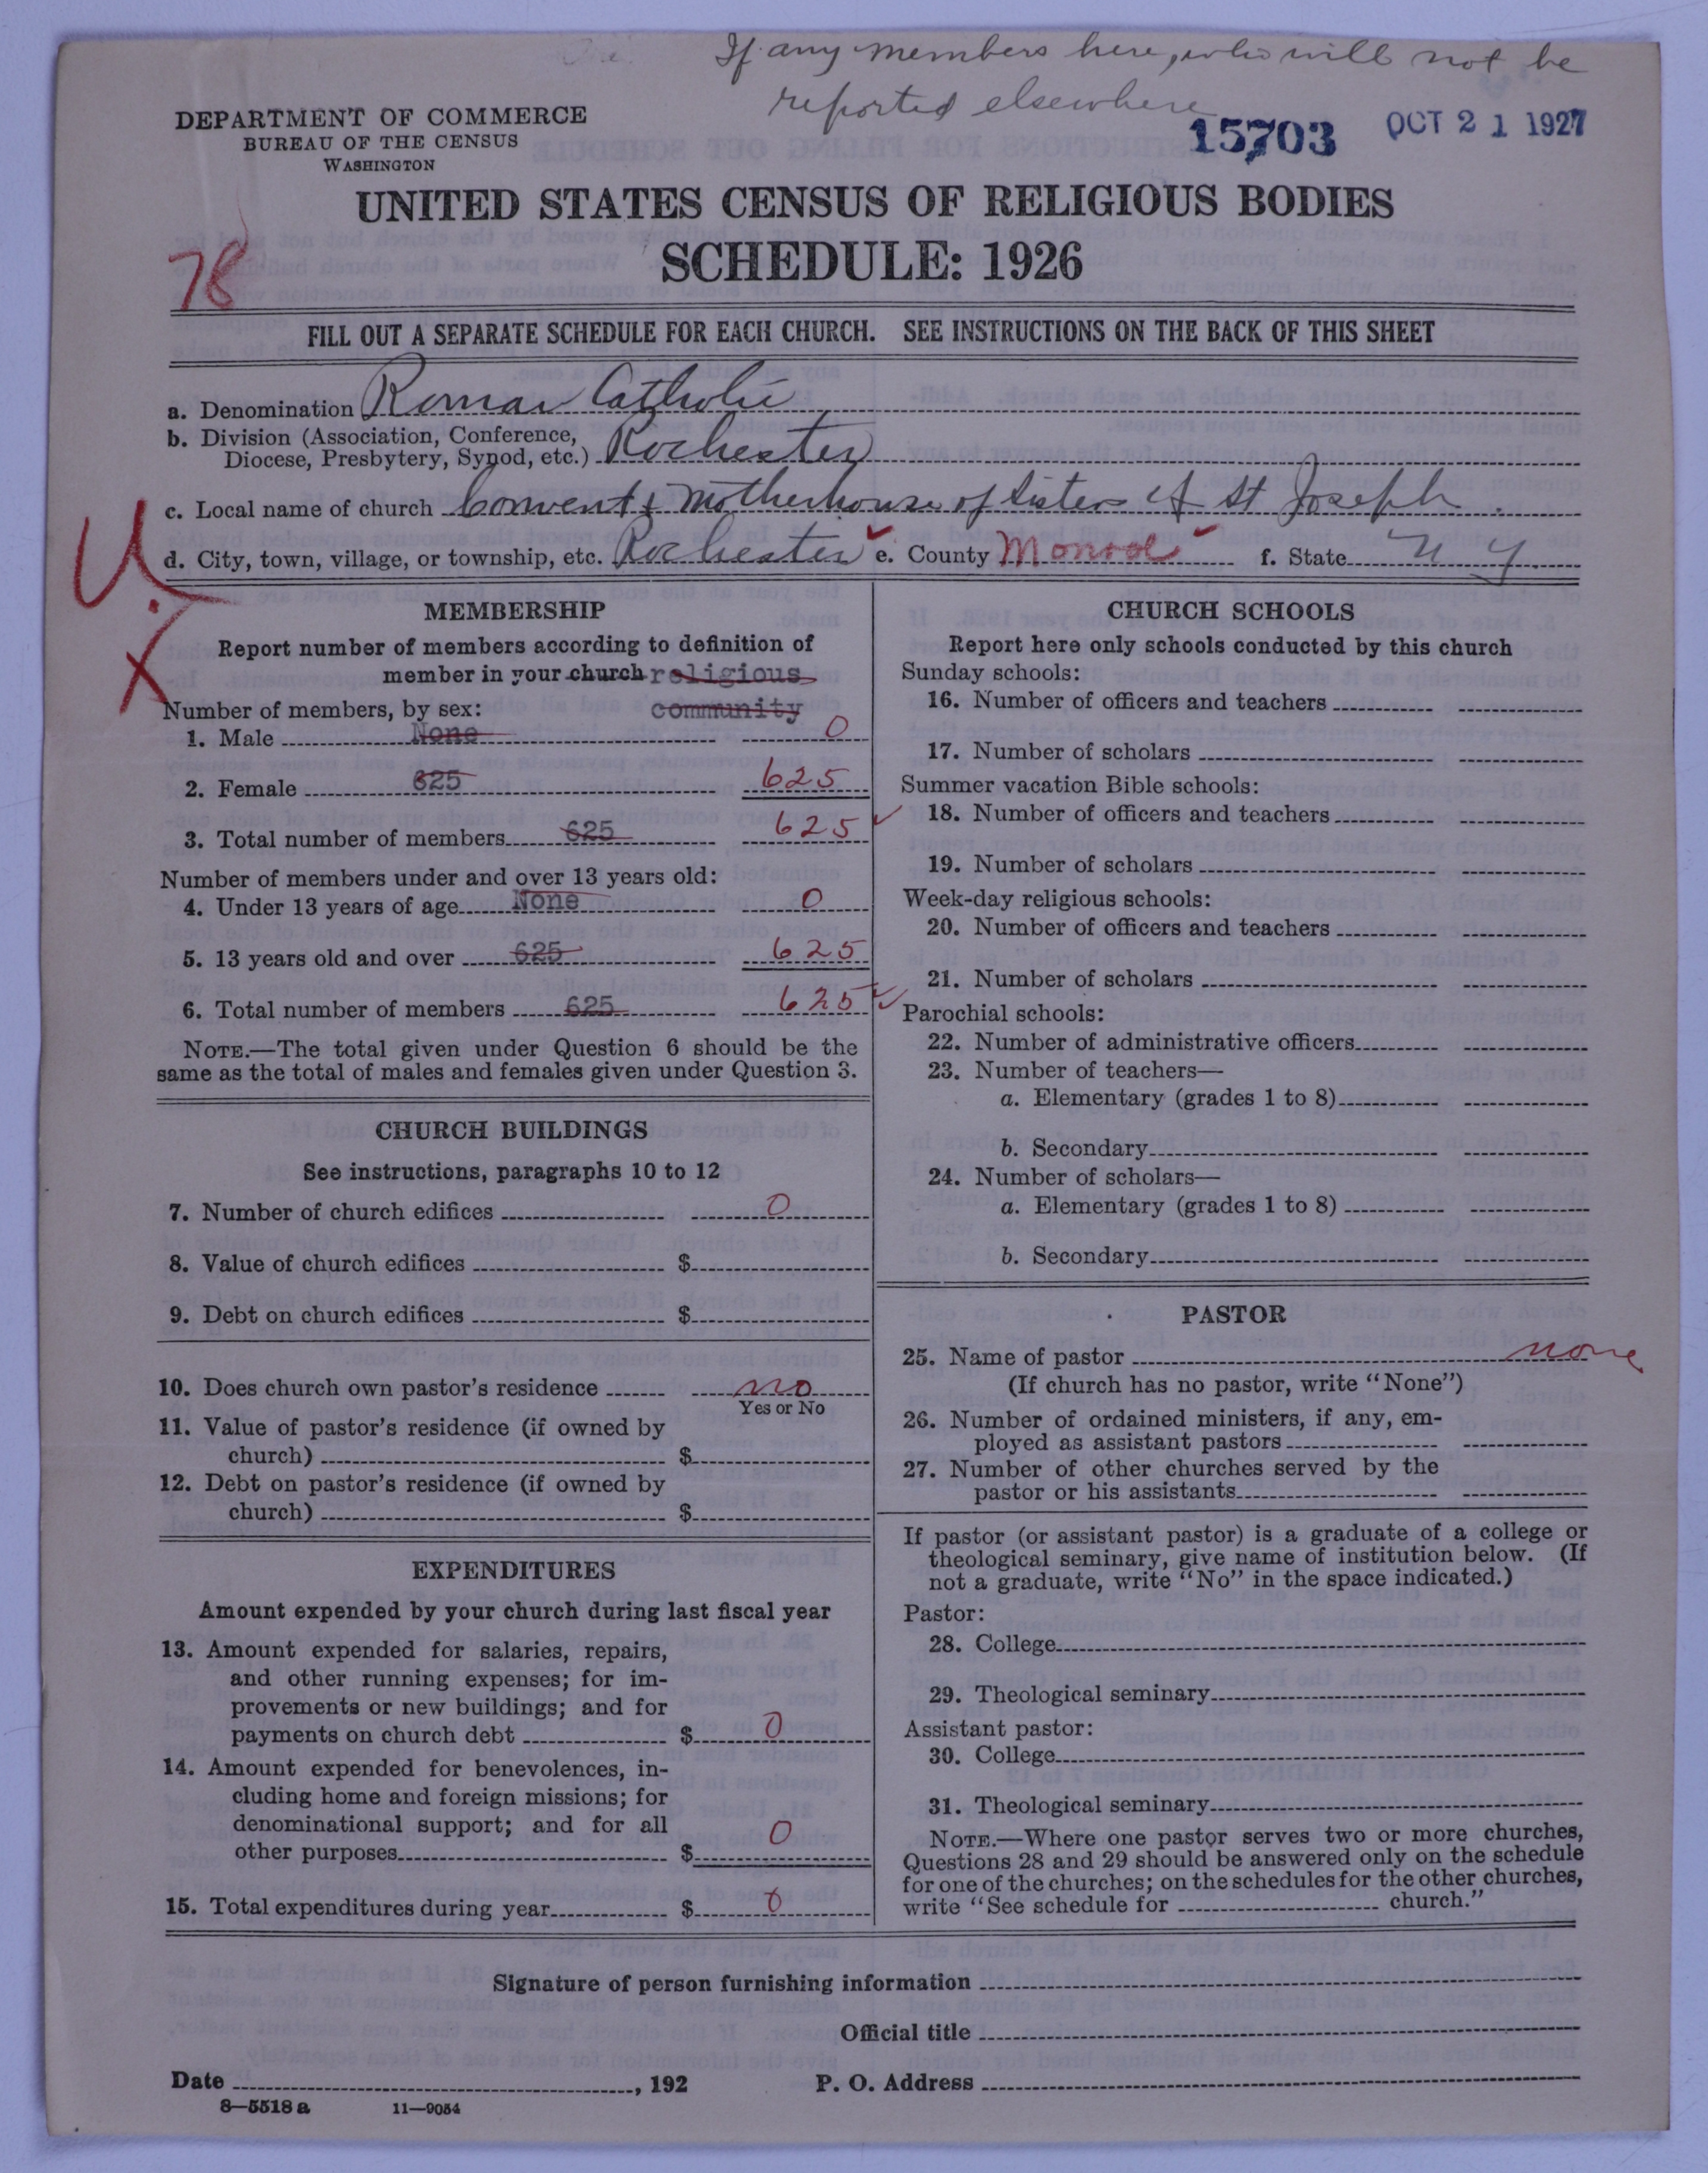 If any members here, who will not be
reported elsewhere
DEPARTMENT OF COMMERCE
BUREAU OF THE CENSUS
WASHINGTON
15703
OCT 21 1927
UNITED STATES CENSUS OF RELIGIOUS BODIES
SCHEDULE: 1926
78
FILL OUT A SEPARATE SCHEDULE FOR EACH CHURCH. SEE INSTRUCTIONS ON THE BACK OF THIS SHEET
a. Denomination Roman Catholic
b. Division (Association, Conference,
Diocese, Presbytery, Synod, etc.) Rochester
c. Local name of church Convent & Motherhouse of Sisters of St Joseph.
d. City, town, village, or township, etc. Rochester e. County Monroe f. State N Y.
U.
X
MEMBERSHIP
Report number of members according to definition of
member in your church religious
community
Number of members, by sex:
1. Male None 0
2. Female 625 625
3. Total number of members 625 625
Number of members under and over 13 years old:
4. Under 13 years of age None 0
5. 13 years old and over 625 625
6. Total number of members 625 625
NOTE.—The total given under Question 6 should be the
same as the total of males and females given under Question 3.
CHURCH BUILDINGS
See instructions, paragraphs 10 to 12
7. Number of church edifices 0
8. Value of church edifices $
9. Debt on church edifices $
10. Does church own pastor's residence no
Yes or No
11. Value of pastor's residence (if owned by
church) $
12. Debt on pastor's residence (if owned by
church) $
EXPENDITURES
Amount expended by your church during last fiscal year
13. Amount expended for salaries, repairs,
and other running expenses; for im-
provements or new buildings; and for
payments on church debt $ 0
14. Amount expended for benevolences, in-
cluding home and foreign missions; for
denominational support; and for all
other purposes $ 0
15. Total expenditures during year $ 0
CHURCH SCHOOLS
Report here only schools conducted by this church
Sunday schools:
16. Number of officers and teachers
17. Number of scholars
Summer vacation Bible schools:
18. Number of officers and teachers
19. Number of scholars
Week-day religious schools:
20. Number of officers and teachers
21. Number of scholars
Parochial schools:
22. Number of administrative officers
23. Number of teachers—
a. Elementary (grades 1 to 8)
b. Secondary
24. Number of scholars—
a. Elementary (grades 1 to 8)
b. Secondary
PASTOR
25. Name of pastor none
(If church has no pastor, write "None")
26. Number of ordained ministers, if any, em-
ployed as assistant pastors
27. Number of other churches served by the
pastor or his assistants
If pastor (or assistant pastor) is a graduate of a college or
theological seminary, give name of institution below. (If
not a graduate, write "No" in the space indicated.)
Pastor:
28. College
29. Theological seminary
Assistant pastor:
30. College
31. Theological seminary
NOTE.—Where one pastor serves two or more churches,
Questions 28 and 29 should be answered only on the schedule
for one of the churches; on the schedules for the other churches,
write "See schedule for church."
Signature of person furnishing information
Official title
Date , 192 P. O. Address
8—5518 a 11—9054